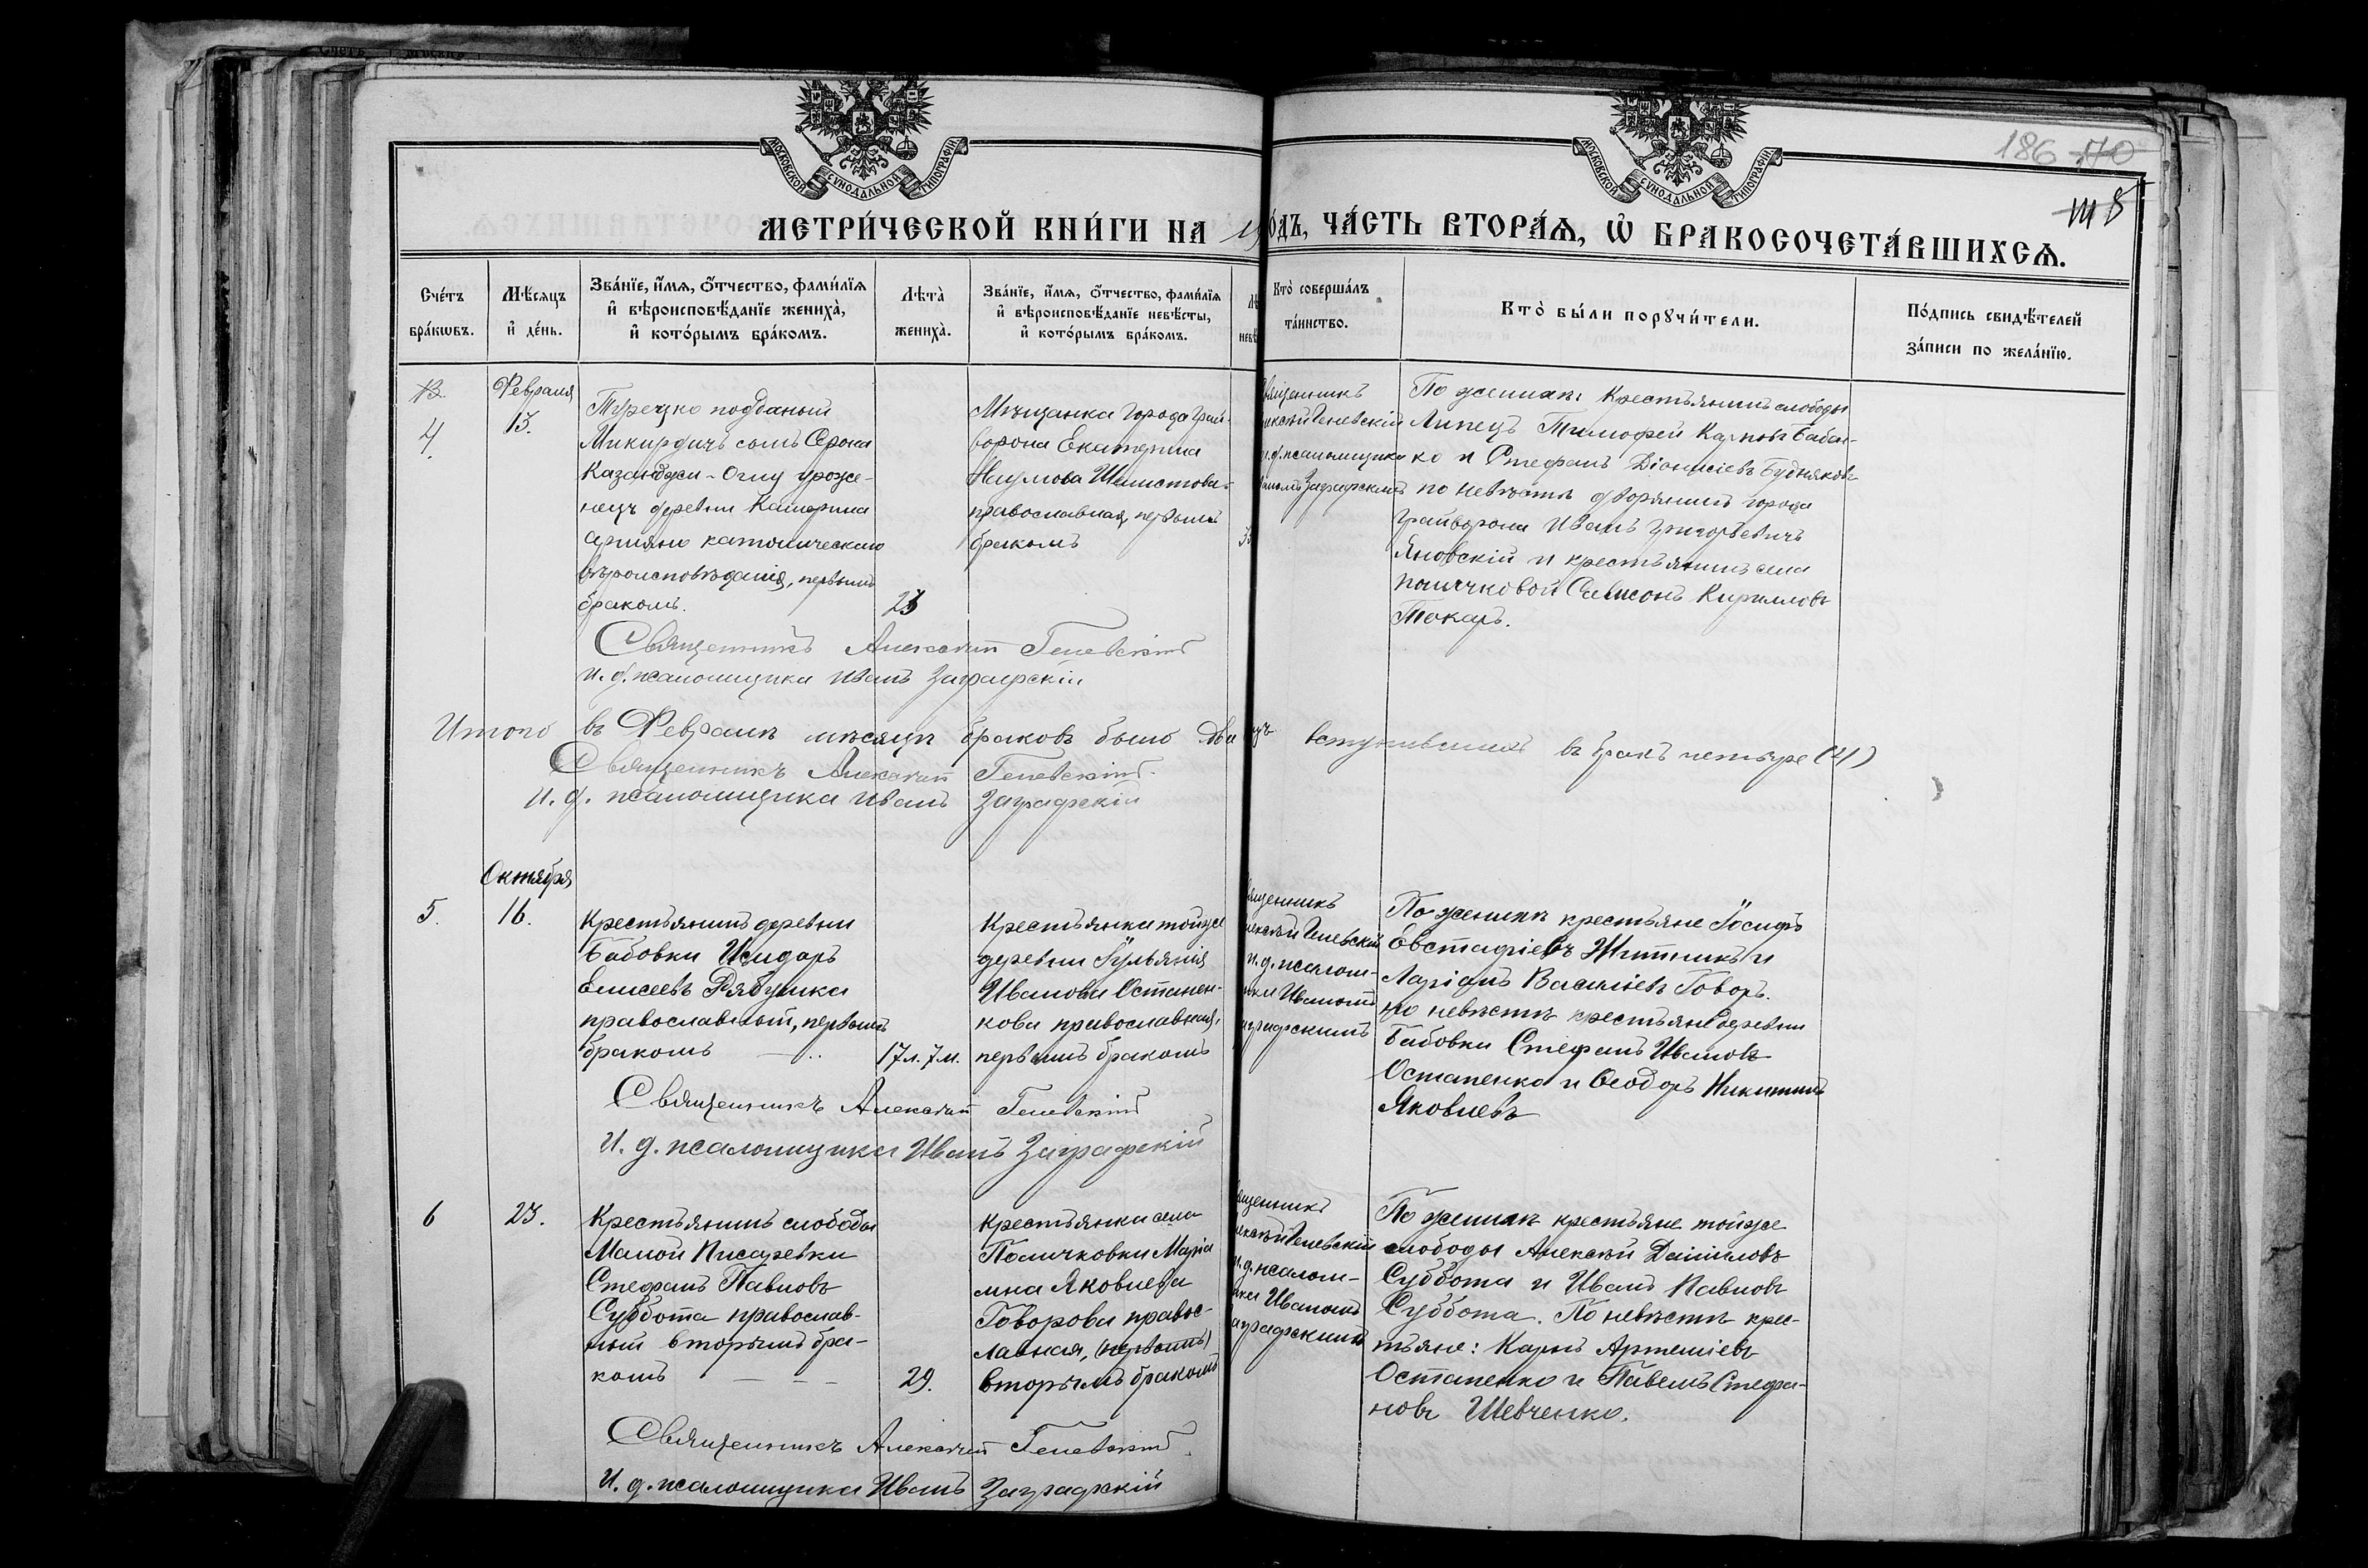 186 170
МОСКОВСКОЙ СѴНОДАЛЬНОЙ ТИПОГРАФІИ
МОСКОВСКОЙ СѴНОДАЛЬНОЙ ТИПОГРАФІИ
МЕТРИ́ЧЕСКОЙ КНИ́ГИ НА 19
О́ДЪ, ЧА́СТЬ ВТОРА́Ѧ, Ѡ҆ БРАКОСОЧЕТА́ВШИХСѦ.
Сче́тъ бра́кѡвъ.
Мѣ́сяцъ и҆ де́нь.
Зва́нїе, и҆́мѧ, ѻ҆́тчество, фами́лїѧ
и҆ вѣроисповѣ́данїе жениха̀,
и҆ кото́рымъ бра́комъ.
Лѣта̀ жениха̀.
Зва́нїе, и҆́мѧ, ѻ҆́тчество, фами́лїѧ
и҆ вѣроисповѣ́данїе невѣ́сты,
и҆ кото́рымъ бра́комъ.
Кто̀ соверша́лъ та́инство.
Кто̀ бы́ли порꙋчи́тели.
По́дпись свидѣ́телей
за́писи по жела́нїю.
4
Февраля
13.
Турецко подданый
Микирдичъ сынъ Серона
Казанджи-Оглу уроже-
нецъ деревни
армяно католическаго
вѣроисповѣданія, первымъ
бракомъ.
23
Мѣщанка города Грай-
ворона Екатерина
Наумова
православная, первымъ
бракомъ
вященникъ
лексѣй Гелевскій
и.д. псаломщика
Заграфскимъ
По женихѣ крестьянинъ слободы
Липецъ Тимофей Карповъ Бабен-
ко и Стефанъ Діонисіевъ Будняковъ
по невѣстѣ дворянинъ города
Грайворона Иванъ Григорьевичъ
Яновскій и крестьянинъ села
Поличковой Самсонъ Кирилловъ
Токарь.
Священникъ Алексѣй Гелевскій
и.д. псаломщика Иванъ Заграфскій
Итого въ Февралѣ мѣсяцѣ браковъ было два вступившихъ въ бракъ четыре (4)
Священникъ Алексѣй Гелевскій.
и.д. псаломщика Иванъ Заграфскій
Октября
5.
16.
Крестьянинъ деревни
Бабовки Исидоръ
Елисеевъ Рябушка
православный, первымъ
бракомъ
17 л. 7 м.
Крестьянка тойже
деревни Іульянія
Иванова Остапен-
кова православная,
первымъ бракомъ
вященникъ
лексѣй Гелевскій
и.д. псалом-
ика Иваномъ
аграфскимъ
По женихѣ крестьяне Іосифъ
Евстафіевъ Житникъ и
Ларіонъ Василіевъ Говоръ.
по невѣстѣ крестьяне деревни
Бабовки Стефанъ Ивановъ
Остапенко и Ѳеодоръ Никитинъ
Яковлевъ
Священникъ Алексѣй Гелевскій
И.д. псаломщика Иванъ Заграфскій
6
23.
Крестьянинъ слободы
Малой Писаревки
Стефанъ Павловъ
Суббота православ-
ный вторымъ бра-
комъ
29.
Крестьянка села
Поличковки Маріа
мна Яковлева
Говорова правос-
лавная, (первымъ)
вторымъ бракомъ
ященникъ
лексѣй Гелевскій
и.д. псалом-
ика Иваномъ
аграфскимъ
По женихѣ крестьяне тойже
слободы Алексѣй Даніиловъ
Суббота и Иванъ Павловъ
Суббота. По невѣстѣ крес-
тьяне: Карпъ Артеміевъ
Остапенко и Павелъ Стефа-
новъ Шевченко.
Священникъ Алексѣй Гелевскій.
И.д. псаломщика Иванъ Заграфскій